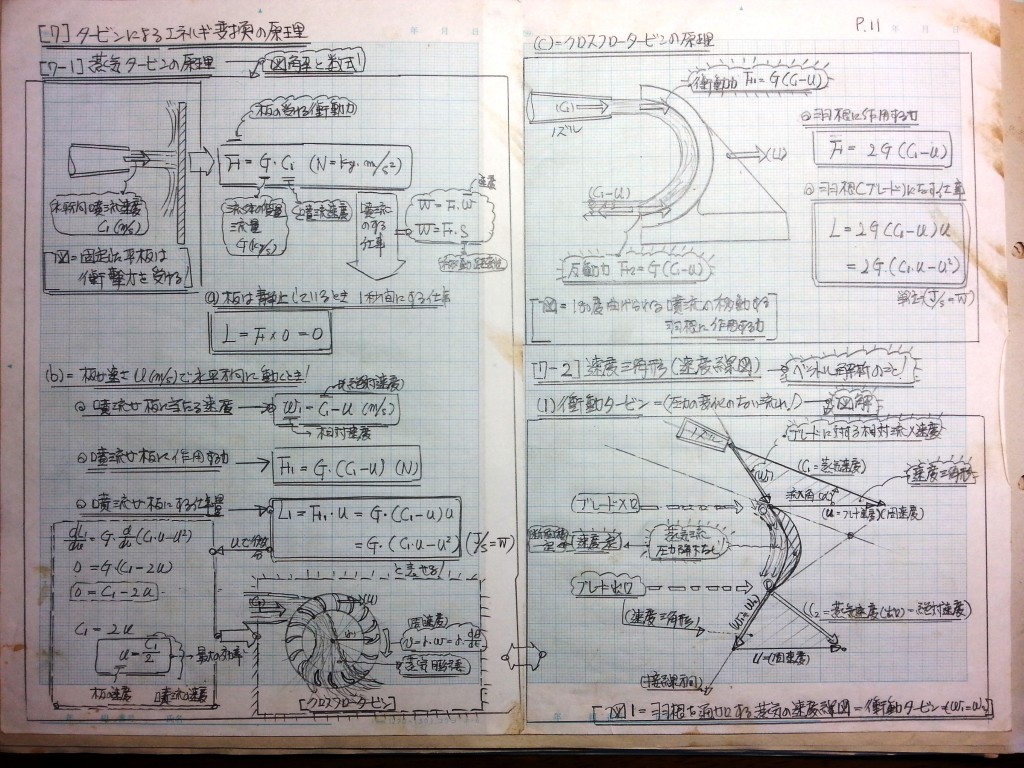 P.11
[7] タービンによるエネルギ変換の原理
[7-1] 蒸気タービンの原理
図解と数式!
板の受ける衝動力
F1 = G・C1 (N = kg・m/s²)
水平方向噴流速度
C1 (m/s)
流体の質量
流量
G (kg/s)
噴流速度
噴流
のする
仕事
速度
W = F・W
W = F・S
移動距離
図=固定した平板は
衝撃力を受ける!
(a) 板は静止しているとき 1秒間にする仕事
L = F × 0 = 0
(b)= 板が速さ U (m/s)で水平方向に動くとき!
噴流が板に当たる速度
W1 = C1 - U (m/s)
相対速度
噴流が板に作用する力
F1 = G・(C1 - U) (N)
噴流が板にする仕事量
L1 = F1・U = G・(C1 - U)U
= G・(C1・U - U²) (J/S = W)
と表せる!
Uで微分
dL1/du = G・d/du (C1・U - U²)
0 = G・(C1 - 2U)
0 = C1 - 2U
C1 = 2U
U = C1/2
最大の効率
板の速度
噴流の速度
周速度
蒸気膨張
[クロスフロータービン]
(C)= クロスフロータービンの原理
衝動力 F1 = G(C1 - U)
(C1)
ノズル
(U)
(C1 - U)
反動力 F2 = G(C1 - U)
羽根に作用する力
F1 = 2G(C1 - U)
羽根(ブレード)になす仕事
L = 2G(C1 - U)U
= 2G・(C1・U - U²)
単位(J/S = W)
図=180度曲げられる噴流の移動する
羽根に作用する力
[7-2] 速度三角形(速度線図)
ベクトル解析のこと!
(1) 衝動タービン=(圧力の変化のない流れ!)
図解
ノズル
ブレードに対する相対流入速度
(W1)
(C1=蒸気速度)
速度三角形
流入角
(U=ブレード速度)(周速度)
ブレード入口
速度差
蒸気流
圧力降下なし
ブレード出口
(速度三角形)
(C2=蒸気速度(出口)=絶対速度)
U=(周速度)
(接線方向)
[図1=羽根を流出入する蒸気の速度線図=衝動タービン(W1=W2)]